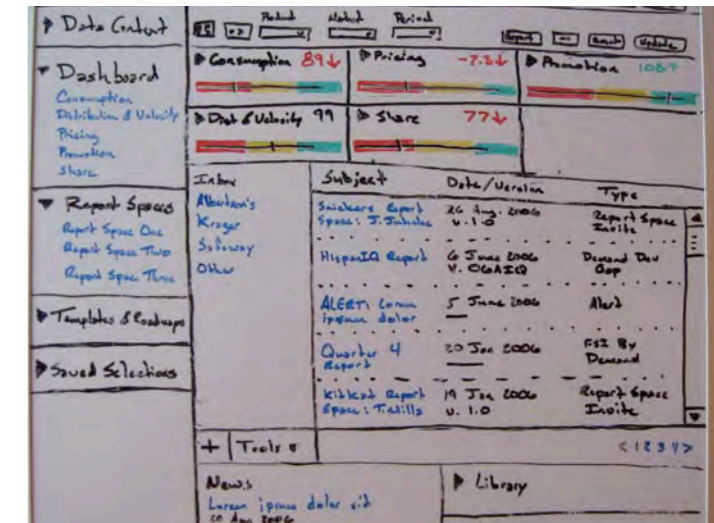 Data Context
Dashboard
Consumption
Distribution & Velocity
Pricing
Promotion
Share
Report Spaces
Report Space One
Report Space Two
Report Space Three
Templates & Roadmaps
Saved Selections
Product
Market
Period
Export
Reset
Update
Consumption 89↓
Pricing -7.3↓
Promotion 108↑
Dist & Velocity 99
Share 77↓
Inbox
Albertson's
Kroger
Safeway
Other
Subject Date/Version Type
Snickers Report 26 Aug. 2006 Report Space
Space: J. v. 1.0 Invite
HispanIQ Report 6 June 2006 Demand Dev
V. 06AIQ Opp
ALERT: Lorem 5 June 2006 Alert
ipsum dolor
Quarter 4 20 Jan 2006 FSI By
Report Demand
Kitkat Report 19 Jan 2006 Report Space
Space: v. 1.0 Invite
+ Tools
< 1 2 3 4 >
News
Lorem ipsum dolor sit
20 Aug 2006
Library